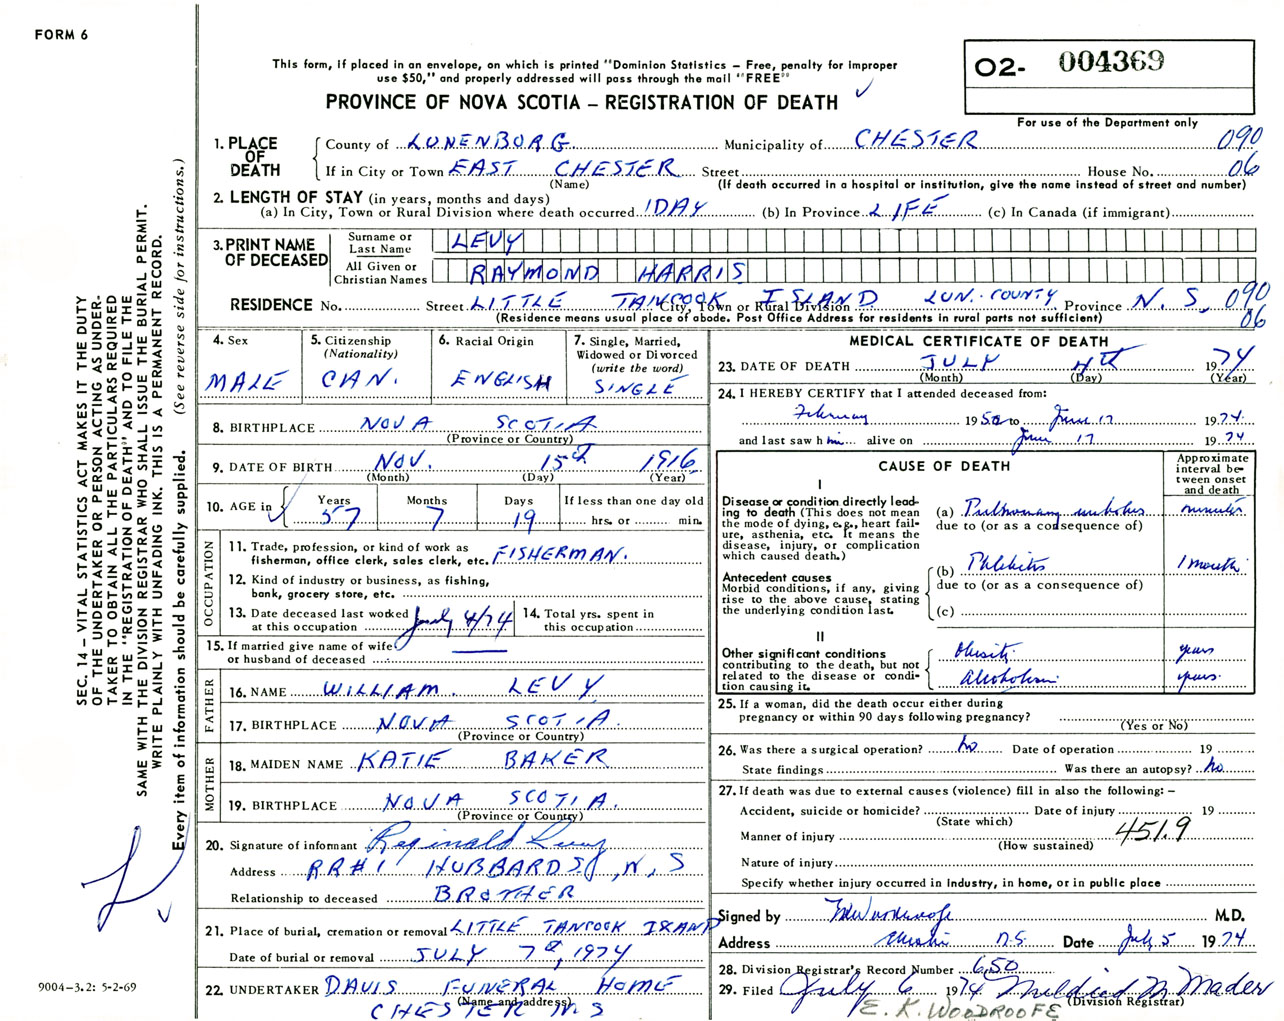 FORM 6
This form, if placed in an envelope, on which is printed "Dominion Statistics – Free, penalty for improper
use $50," and properly addressed will pass through the mail "FREE"
PROVINCE OF NOVA SCOTIA – REGISTRATION OF DEATH
O2- 004369
For use of the Department only
1. PLACE OF DEATH
County of LUNENBORG Municipality of CHESTER 090
If in City or Town EAST CHESTER Street House No. 06
(Name) (If death occurred in a hospital or institution, give the name instead of street and number)
2. LENGTH OF STAY (in years, months and days)
(a) In City, Town or Rural Division where death occurred 1 DAY (b) In Province LIFE (c) In Canada (if immigrant)
3. PRINT NAME OF DECEASED
Surname or Last Name LEVY
All Given or Christian Names RAYMOND HARRIS
RESIDENCE No. Street LITTLE TANCOOK ISLAND LUN. COUNTY City, Town or Rural Division Province N.S. 090
(Residence means usual place of abode. Post Office Address for residents in rural parts not sufficient) 06
4. Sex
MALE
5. Citizenship
(Nationality)
CAN.
6. Racial Origin
ENGLISH
7. Single, Married,
Widowed or Divorced
(write the word)
SINGLE
8. BIRTHPLACE NOVA SCOTIA
(Province or Country)
9. DATE OF BIRTH NOV. 15th 1916
(Month) (Day) (Year)
10. AGE in Years Months Days If less than one day old
57 7 19 hrs. or min.
OCCUPATION
11. Trade, profession, or kind of work as
fisherman, office clerk, sales clerk, etc. FISHERMAN.
12. Kind of industry or business, as fishing,
bank, grocery store, etc.
13. Date deceased last worked
at this occupation July 4/74
14. Total yrs. spent in
this occupation
15. If married give name of wife
or husband of deceased
FATHER
16. NAME WILLIAM LEVY
17. BIRTHPLACE NOVA SCOTIA.
(Province or Country)
MOTHER
18. MAIDEN NAME KATIE BAKER
19. BIRTHPLACE NOVA SCOTIA.
(Province or Country)
20. Signature of informant Reginald Levy
Address RR#1 HUBBARDS, N.S
Relationship to deceased BROTHER
21. Place of burial, cremation or removal LITTLE TANCOOK ISLAND
Date of burial or removal JULY 7th, 1974
22. UNDERTAKER DAVIS FUNERAL HOME
(Name and address)
CHESTER N.S
MEDICAL CERTIFICATE OF DEATH
23. DATE OF DEATH JULY 4th 1974
(Month) (Day) (Year)
24. I HEREBY CERTIFY that I attended deceased from:
February 1950 to June 17 1974
and last saw him alive on June 17 1974
CAUSE OF DEATH
Approximate
interval be-
tween onset
and death
I
Disease or condition directly lead-
ing to death (This does not mean
the mode of dying, e.g., heart fail-
ure, asthenia, etc. It means the
disease, injury, or complication
which caused death.)
(a) Pulmonary embolus minutes
due to (or as a consequence of)
Antecedent causes
Morbid conditions, if any, giving
rise to the above cause, stating
the underlying condition last.
(b) Phlebitis 1 month
due to (or as a consequence of)
(c)
II
Other significant conditions
contributing to the death, but not
related to the disease or condi-
tion causing it.
Obesity years
Alcoholism years
25. If a woman, did the death occur either during
pregnancy or within 90 days following pregnancy?
(Yes or No)
26. Was there a surgical operation? No Date of operation 19
State findings Was there an autopsy? No
27. If death was due to external causes (violence) fill in also the following: –
Accident, suicide or homicide? Date of injury 19
(State which)
Manner of injury 451.9
(How sustained)
Nature of injury
Specify whether injury occurred in Industry, in home, or in public place
Signed by EKWoodroofe M.D.
Address Chester N.S. Date July 5 1974
28. Division Registrar's Record Number 650
29. Filed July 6 1974 Mildred M Mader
(Division Registrar)
E. K. WOODROOFE
SEC. 14 – VITAL STATISTICS ACT MAKES IT THE DUTY
OF THE UNDERTAKER OR PERSON ACTING AS UNDER-
TAKER TO OBTAIN ALL THE PARTICULARS REQUIRED
IN THE "REGISTRATION OF DEATH" AND TO FILE THE
SAME WITH THE DIVISION REGISTRAR WHO SHALL ISSUE THE BURIAL PERMIT.
WRITE PLAINLY WITH UNFADING INK. THIS IS A PERMANENT RECORD.
Every item of information should be carefully supplied. (See reverse side for instructions.)
9004-3.2: 5-2-69